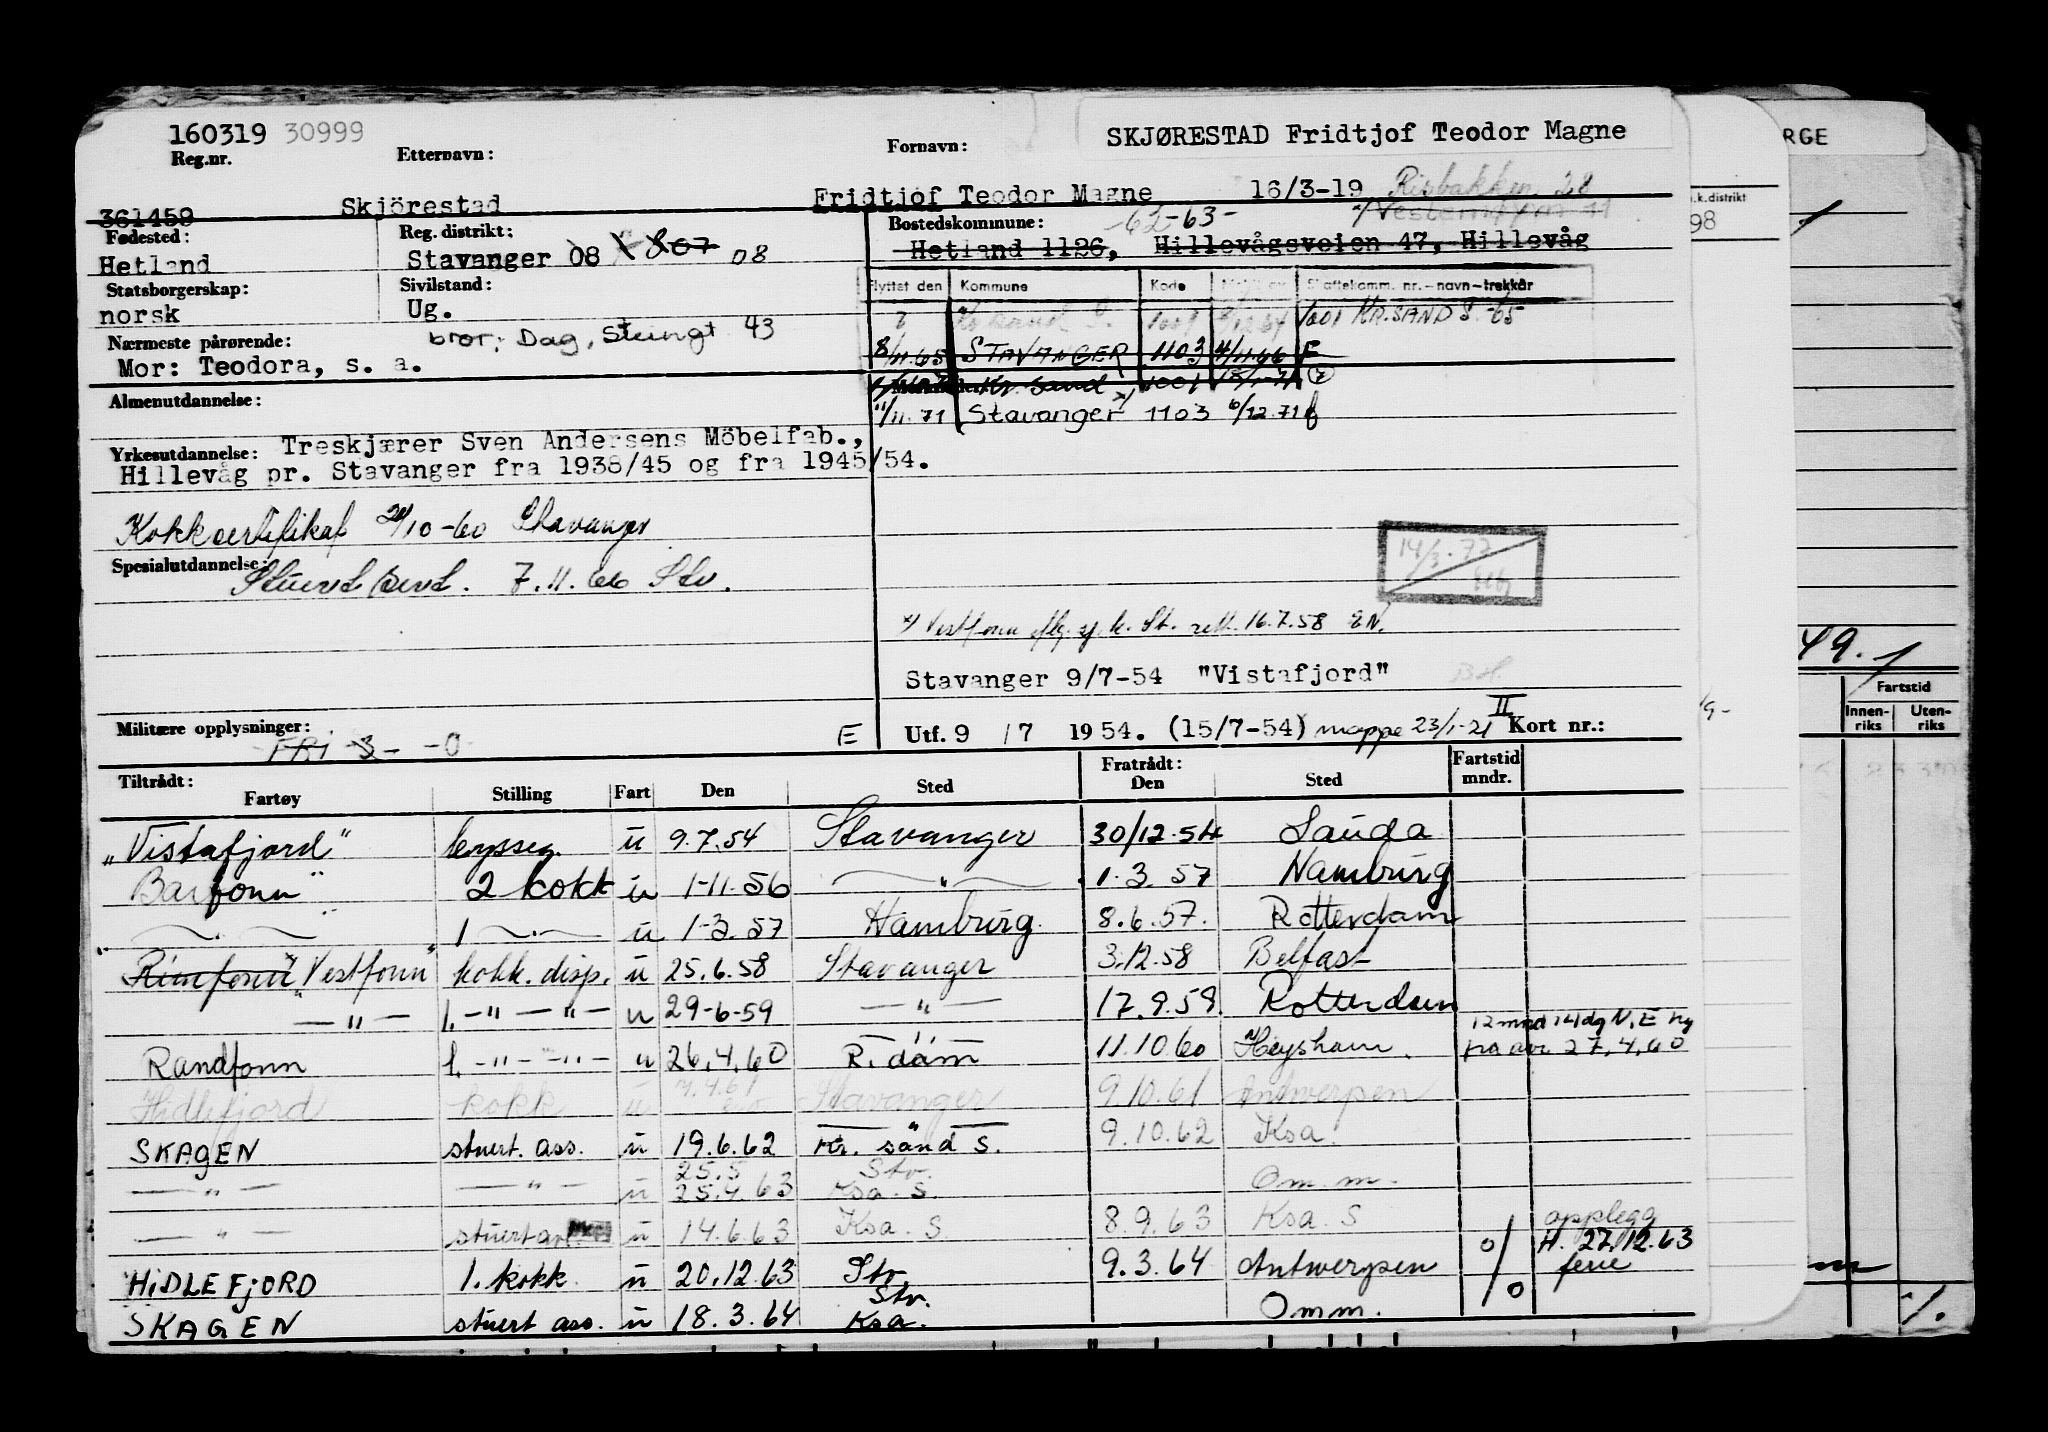 160319 30999
Reg.nr.
Etternavn:
Fornavn:
SKJØRESTAD Fridtjof Teodor Magne
361459
Skjörestad
Fridtjof Teodor Magne
16/3-19
Risbakken 28
Fødested:
Hetland
Reg. distrikt:
Stavanger 08
08
Bostedskommune:
62-63-
Hetland 1126, Hillevågsveien 47, Hillevåg
Statsborgerskap:
norsk
Sivilstand:
Ug.
Flyttet den
Kommune
Kode
Skattekomm. nr.-navn-trekkår
1001 KR.SAND S. -65
Nærmeste pårørende:
bror: Dag, Steingt 43
Mor: Teodora, s. a.
8/11.65 STAVANGER 1103 4/11.66 F
Kr. Sand 1001
11/11.71 Stavanger 1103 6/12.71 f
Almenutdannelse:
Yrkesutdannelse: Treskjærer Sven Andersens Möbelfab.,
Hillevåg pr. Stavanger fra 1938/45 og fra 1945/54.
Kokkcertifikat 20/10-60 Stavanger
Spesialutdannelse:
Stuert sert. 7.11.66 Stv.
14/3.77
x) Vestfonn iflg. sj.k. St. rett. 16.7.58 EN.
Stavanger 9/7-54 "Vistafjord"
Militære opplysninger:
FRI -3- -0
E
Utf. 9 / 7 1954. (15/7-54) mappe 23/1-21 II Kort nr.:
Tiltrådt:
Fartøy
Stilling
Fart
Den
Sted
Fratrådt:
Den
Sted
Fartstid
mndr.
"Vistafjord" bysseg. u 9.7.54 Stavanger 30/12.54 Sauda
Barfonn" 2 kokk u 1-11.56 — " — 1.3.57 Hamburg
— . — 1 — . — u 1-3.57 Hamburg 8.6.57. Rotterdam
"Rimfonn" "Vestfonn" kokk. disp. u 25.6.58 Stavanger 3.12.58 Belfast
— " — 1. — " — " — u 29-6-59 — " — 17.9.59 Rotterdam
12 mnd 14 dg N.E. hy
Randfonn 1. — " — " — u 26.4.60 R.dam 11.10.60 Heysham. fra av. 27.4.60
Hidlefjord kokk u 7.4.61 Stavanger 9.10.61 Antwerpen
SKAGEN stuert. ass. u 19.6.62 Kr. sand S. 9.10.62 Ksa.
25.5 Stv.
— " — — " — u 25.4.63 Ksa. S. Om. m.
— " — stuert u 14.6.63 Ksa. S 8.9.63 Ksa. S opplegg
HIDLEFJORD 1. kokk u 20.12.63 Stv. 9.3.64 Antwerpen 0/ H. 27.12.63
ferie
SKAGEN stuert ass. u 18.3.64 Stv. Ksa. Omm. /0
RGE
k. distrikt
98
49.
Fartstid
Innen-
riks
Uten-
riks